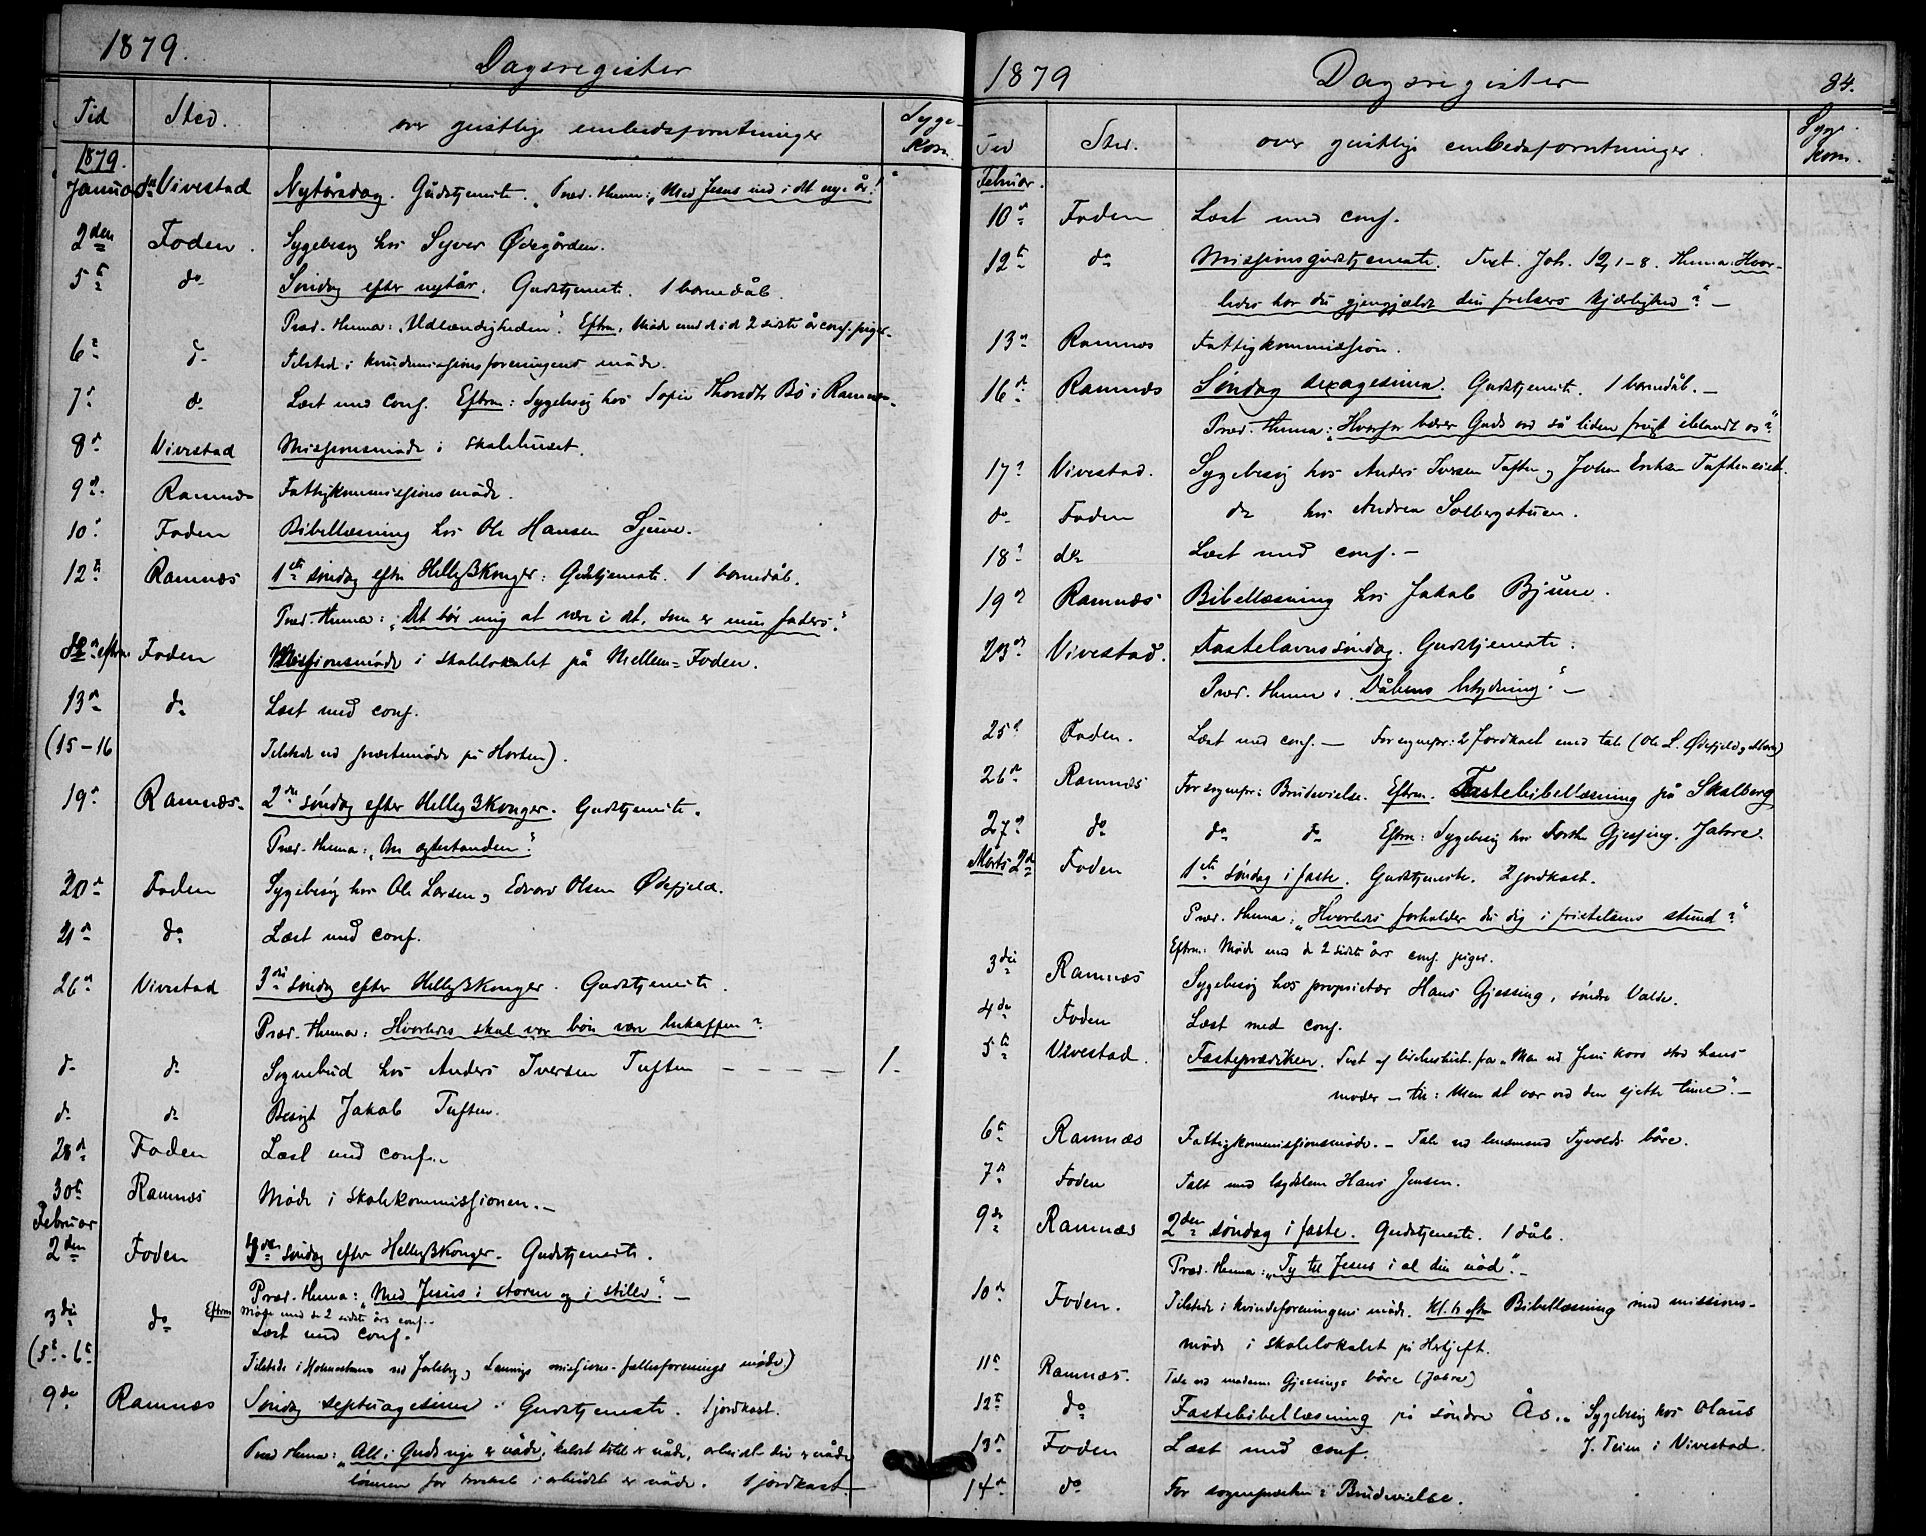 1879.
Dagsregister
Tid
Sted.
over geistlige embedsforretninger
Syge-
kom.
1879.
Januar 1ste Vivestad Nytårsdag. Gudstjeneste. Præd. Thema: "Med Jesus ind i det nye år!"
2den Foden. Sygebesøg hos Syver Ødegården.
5te do Søndag efter nytår. Gudstjeneste. 1 barnedåb.
Præd. Thema: "Udlændigheden". Eftm. Møde med de i de 2 sidste år conf. piger.
6te do Tilstede i kvindemissionsforeningens møde.
7de do Læst med conf. Eftm: Sygebesøg hos Sofie Thorsdtr Bø i Ramnæs.
8de Vivestad Missionsmøde i skolehuset.
9de Ramnæs Fattigkommissionsmøde.
10de Foden Bibellæsning hos Ole Hansen Sjuve.
12te Ramnæs 1ste søndag efter Hellig3Konger: Gudstjeneste. 1 barnedåb.
Præd. Thema: "Det bør mig at være i det, som er min faders."
do eftm Foden Missionsmøde i skolelokalet på Mellem-Foden.
13de do Læst med conf.
(15-16 Tilstede ved præstemøde på Horten).
19de Ramnæs. 2den søndag efter Hellig3Konger. Gudstjeneste.
Præd. Thema: "Om ægtestanden".
20de Foden Sygebesøg hos Ole Larsen og Edvard Olsen Ødefjeld.
21de do Læst med conf.
26de Vivestad 3die søndag efter Hellig3Konger. Gudstjeneste.
Præd. Thema: Hvorledes skal vor bøn være beskaffen?
do do Sognebud hos Anders Iversen Tuften - - - - 1.
do do Besøgt Jakob Tuften.
28de Foden Læst med conf.
30te Ramnæs Møde i skolekommissionen. -
Februar
2den Foden 4de søndag efter Hellig3Konger. Gudstjeneste.
Præd. Thema: "Med Jesus i storm og i stille". -
Eftm Møde med de 2 sidste års conf.
3die do Læst med conf.
(5te-6te Tilstede i Holmestrand ved Jarlsberg og Laurvigs missions-fællesforenings møde)
9de Ramnæs Søndag septuagesima. Gudstjeneste. 1 jordkast.
Præd. Thema: "Alt i Guds rige er nåde", kaldet dertil er nåde, arbeidet deri er nåde
lønnen for arbeidet er nåde. 1 jordkast.
1879
Dagsregister
84.
Tid
Sted.
over geistlige embedsforretninger.
Syge-
kom.
Februar.
10de Foden Læst med conf.
12te do Missionsgudstjeneste. Text. Joh. 12, 1-8. Thema: Hvor-
ledes har du gjengjældt din frelsers kjærlighed"? -
13de Ramnæs Fattigkommission.
16de Ramnæs Søndag sexagesima. Gudstjeneste. 1 barnedåb. -
Præd. Thema: "Hvorfor bærer Guds ord så liden frugt iblandt os"?
17de Vivestad. Sygebesøg hos Anders Iversen Tuften og Johan Eriksen Tufteneiet.
do Foden do hos Andrea Solbergstuen.
18de do Læst med conf. -
19de Ramnæs Bibellæsning hos Jakob Bjune.
23de Vivestad. Fastelavnssøndag. Gudstjeneste.
Præd. Thema: "Dåbens betydning". -
25de Foden. Læst med conf. - For sognepr: 2 Jordkast med tale (Ole L. Ødefjeld og Moen)
26de Ramnæs For sognepr: Brudevielse. Eftm. Fastebibellæsning på Skalberg
27de do do do Eftm: Sygebesøg hos Gjessing. Jahre.
Marts 2den Foden 1ste søndag i faste. Gudstjeneste. 2 jordkast.
Præd. Thema: "Hvorledes forholder du dig i fristelsens stund?"
Eftm: Møde med de 2 sidste års conf. piger.
3die Ramnæs Sygebesøg hos proprietær Hans Gjessing, søndre Valde.
4de Foden Læst med conf.
5te Vivestad. Fasteprædiken. Text af lidelseshist. fra "Men ved Jesu kors stod hans
moder - til: Men det var ved den sjette time". -
6te Ramnæs Fattigkommissionsmøde. - Tale ved husmand Tyvolds båre.
7de Foden Talt med lægdslem Hans Jensen.
9de Ramnæs 2den søndag i faste. Gudstjeneste. 1 dåb.
Præd. Thema: "Ty til Jesus i al din nød". -
10de Foden. Tilstede i kvindeforeningens møde. Kl. 6 eftm Bibellæsning med missions-
møde i skolelokalet på Hertjeft.
11te Ramnæs. Tale ved madam Gjessings båre (Jahre)
12te do Fastebibellæsning på søndre Ås. Sygebesøg hos Olaus
13de Foden Læst med conf. J. Teien i Vivestad.
14de do For sognepræsten: Brudevielse.